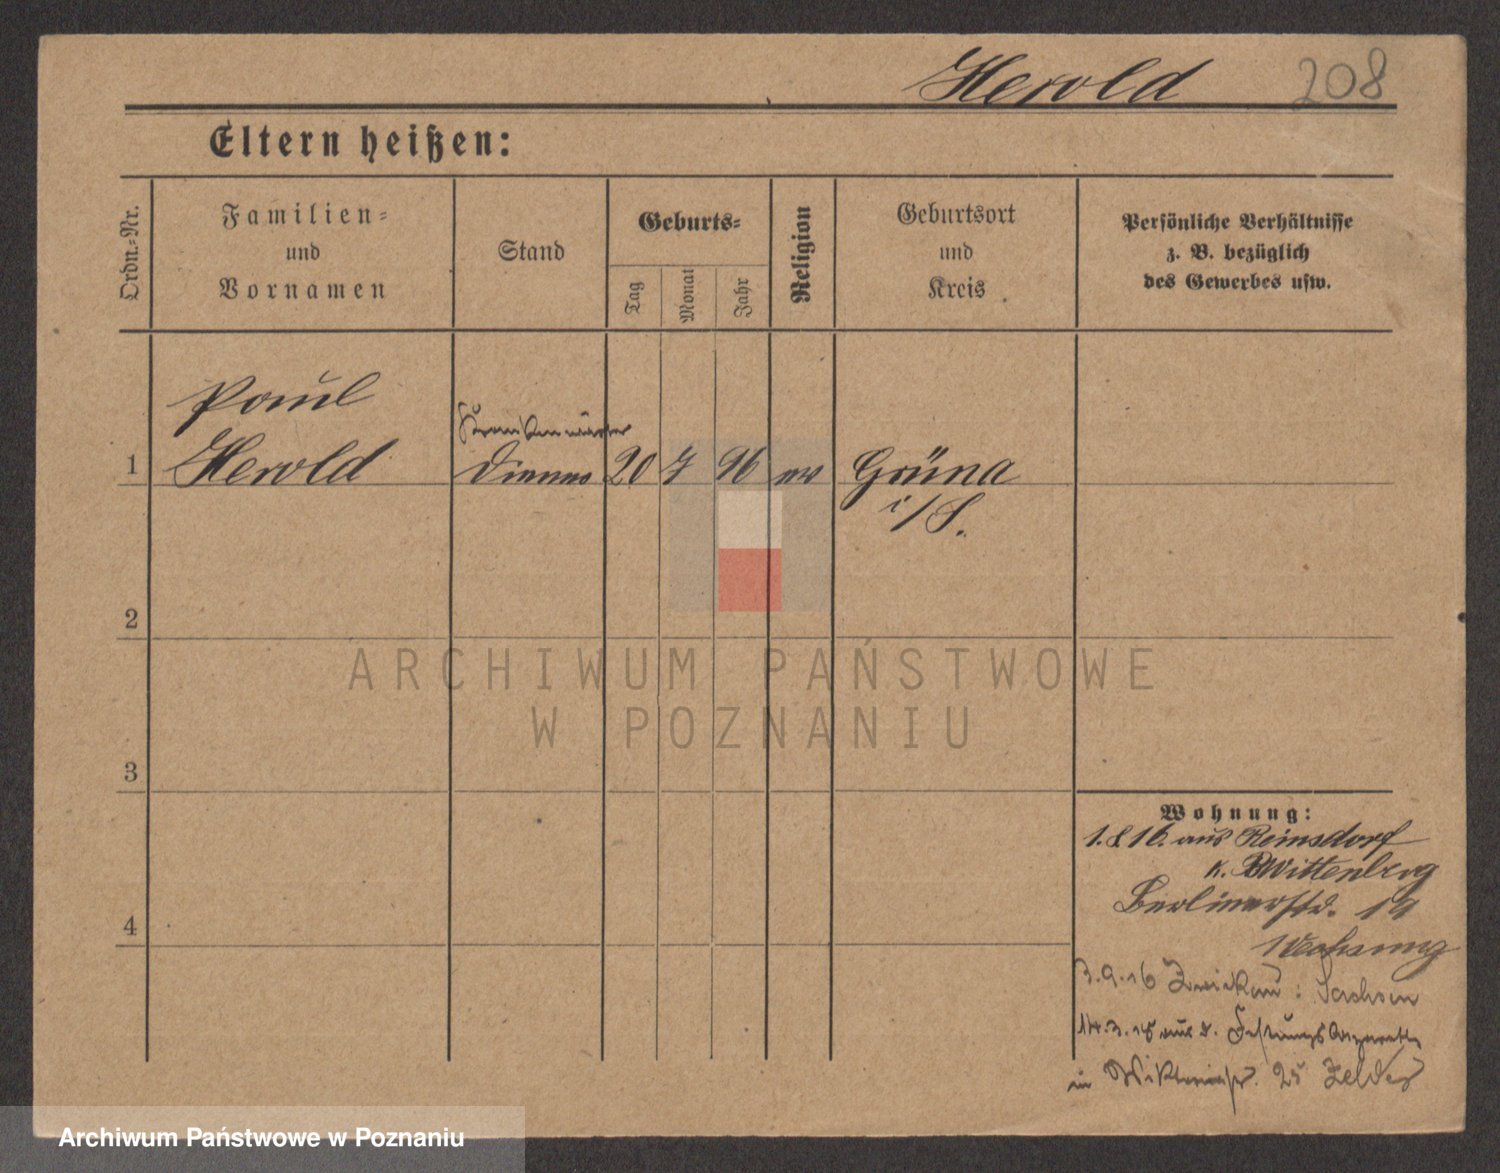 Herold 208
Eltern heißen:
Ordn.-Nr.
Familien-
und
Vornamen
Stand
Geburts-
Tag
Monat
Jahr
Religion
Geburtsort
und
Kreis
Persönliche Verhältnisse
z. B. bezüglich
des Gewerbes usw.
Paul
Krankenwärter
1 Herold 20 7 96 ev Grüna
i/S.
2
3
4
ARCHIWUM PAŃSTWOWE
W POZNANIU
Wohnung:
1.8.16. aus Reinsdorf
Wittenberg
Berlinerstr. 19
Wohnung
3.9.16 Zwickau i. Sachsen
14.3.18 aus d. Festungslazarett
in Wiktoriastr. 25 Zelder
Archiwum Państwowe w Poznaniu